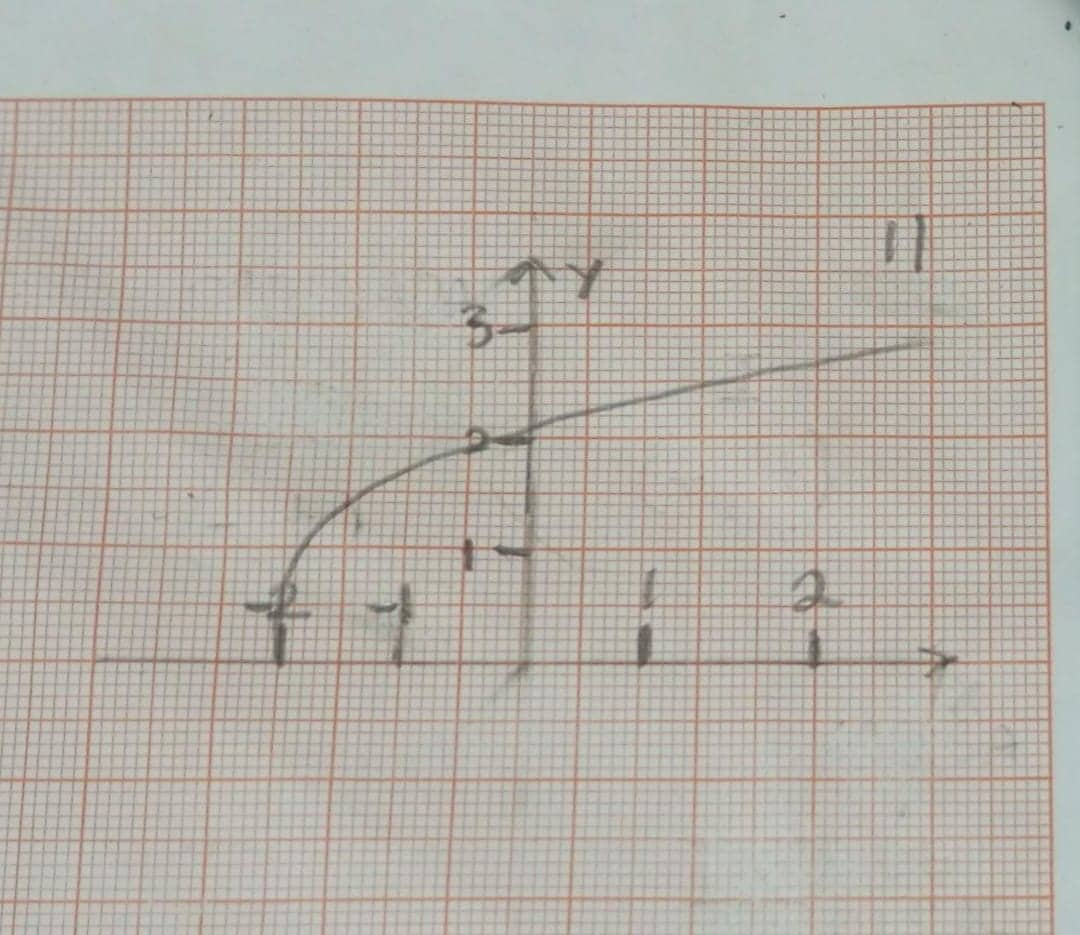 11
y
3
2
1
-2 -1 1 2